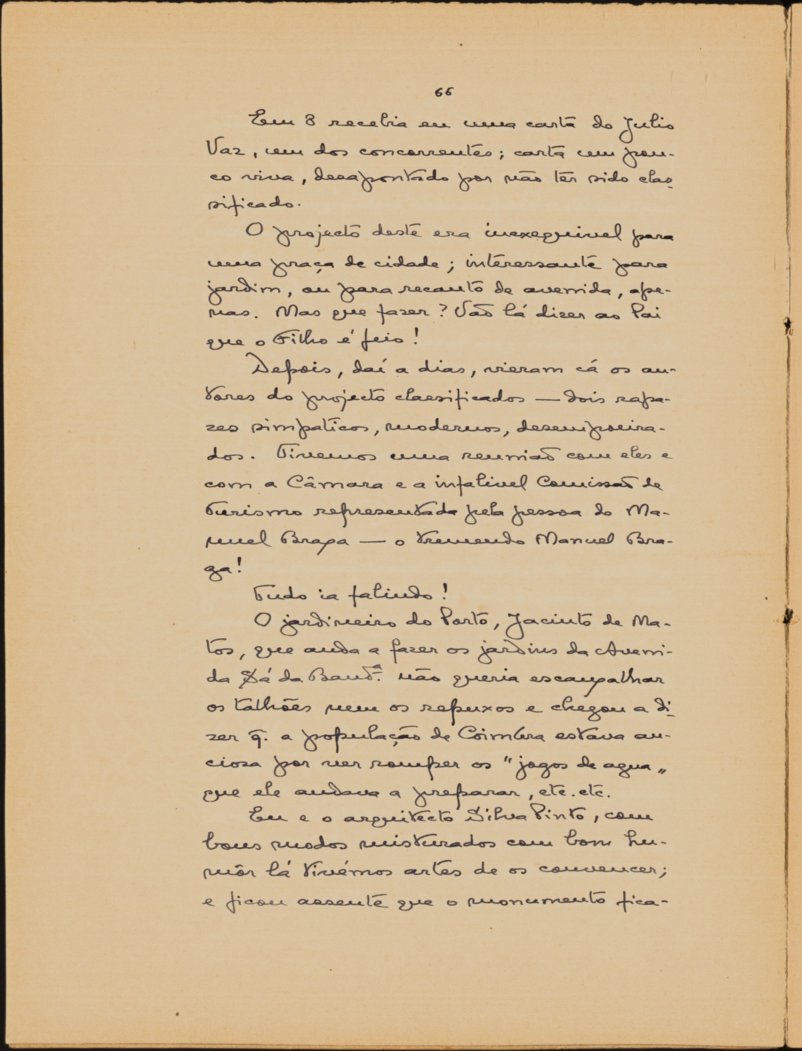 66
Em 8 recebia eu uma carta do Julio
Vaz, um dos concorrentes; carta um pou-
co viva, desapontado por não têr sido clas-
sificado.
O projecto deste era inexequivel para
uma praça de cidade; interessante para
jardim, ou para recanto de avenida, ape-
nas. Mas que fazer? Vão lá dizer ao Pai
que o Filho é feio!
Depois, daí a dias, vieram cá os au-
tores do projecto classificados — dois rapa-
zes simpaticos, modernos, desempoeira-
dos. Tivemos uma reunião com eles e
com a Câmara e a infalivel Comissão de
Turismo representada pela pessoa do Ma-
nuel Braga — o tremendo Manuel Bra-
ga!
Tudo ia falindo!
O jardineiro do Porto, Jacinto de Ma-
tos, que anda a fazer os jardins da Aveni-
da Sá da Band.ª não queria escangalhar
os talhões nem os repuxos e chegou a di-
zer q̃. a população de Coimbra estava an-
ciosa por ver romper os "jogos de agua„
que ele andava a preparar, etc. etc.
Eu e o arquitecto Silva Pinto, com
bons modos misturados com bom hu-
môr lá tivémos artes de os convencer;
e ficou assente que o monumento fica-